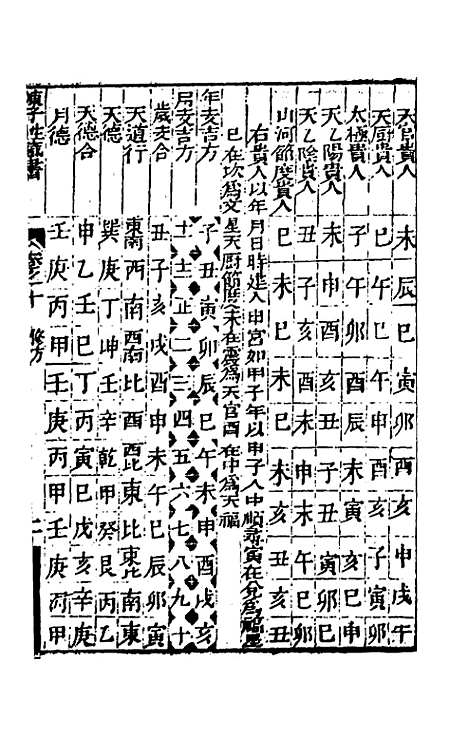 天官貴人 未 辰 巳 寅 卯 酉 亥 申 戌 午
天厨貴人 巳 午 巳 午 申 酉 亥 子 寅 卯
太極貴人 子 午 卯 酉 辰 未 寅 亥 巳 申
天乙陽貴人 未 申 酉 亥 丑 子 丑 寅 卯 巳
天乙陰貴人 丑 子 亥 酉 未 申 未 午 巳 卯
山河節度貴人 巳 未 巳 未 巳 未 亥 丑 亥 丑
右貴人以年月日時進入中宮如甲子年以甲子入中順尋寅在兌為
巳在坎為文星天厨節度未在震為天官酉在中為天福
年支吉方 子 丑 寅 卯 辰 巳 午 未 申 酉 戌 亥
月支吉方 十一 十二 正 二 三 四 五 六 七 八 九 十
歲支合 丑 子 亥 戌 酉 申 未 午 巳 辰 卯 寅
天道行 東南 西 南 西南 北 酉 西北 東 北 東北 南 東
天德 巽 庚 丁 坤 壬 辛 乾 甲 癸 艮 丙 乙
天德合 申 乙 壬 巳 丁 丙 寅 己 戊 亥 辛 庚
月德 壬 庚 丙 甲 壬 庚 丙 甲 壬 庚 丙 甲
陳子性藏書 卷之十 修方